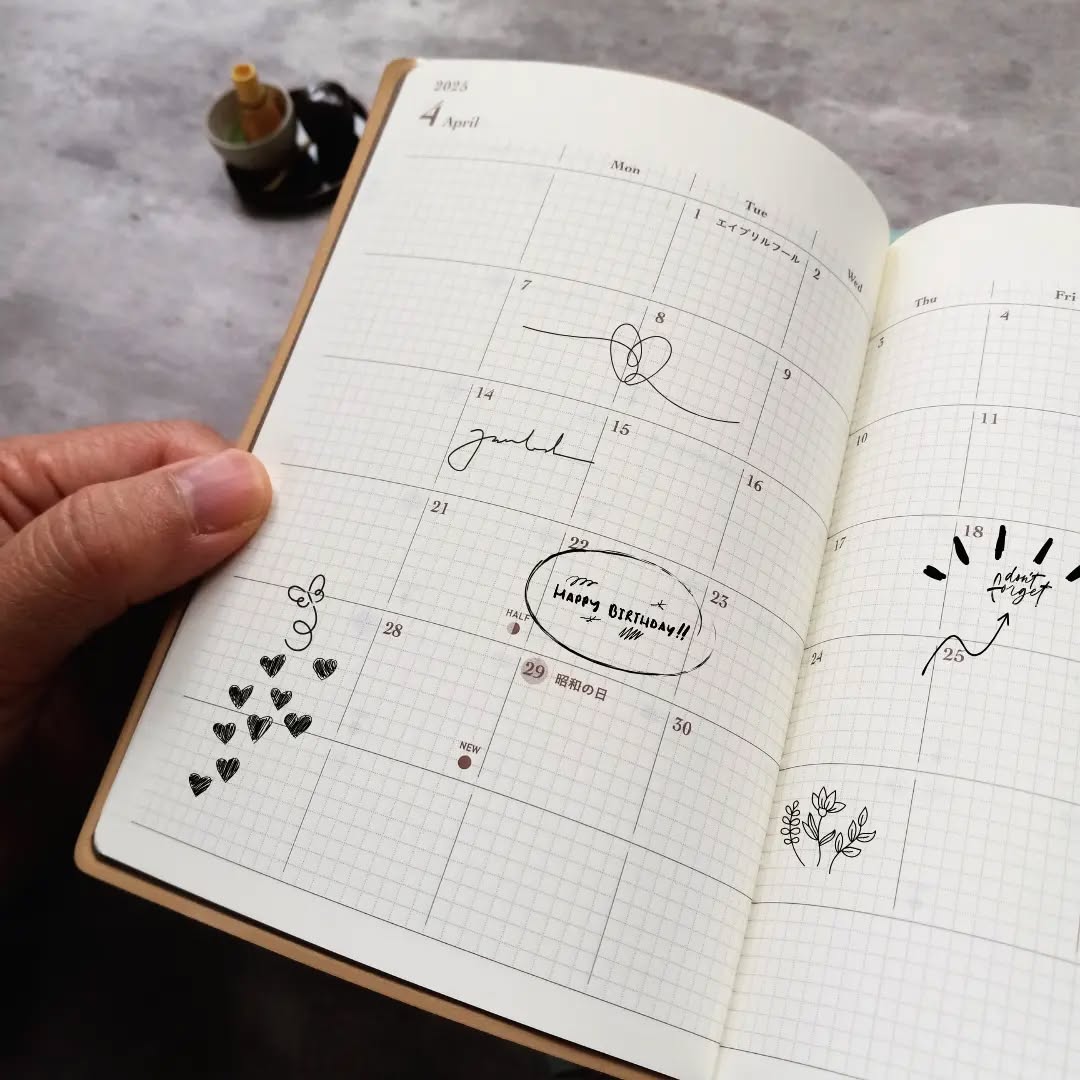 2025
4 April
Mon
Tue
Wed
Thu
Fri
1 エイプリルフール
2
3
4
7
8
9
10
11
14
15
16
17
18
don't
forget
21
22
HAPPY BIRTHDAY!!
23
24
25
HALF
28
29 昭和の日
30
NEW